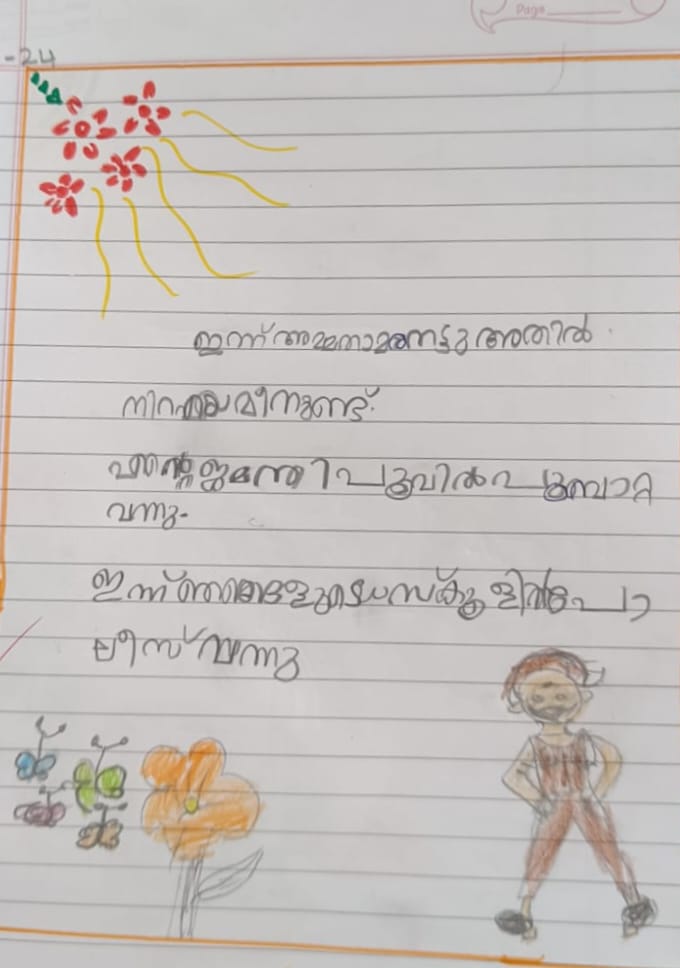 Page
-24
ഇന്ന് അമ്മ താമര നട്ടു അതിൽ
നിറയെ മീനുണ്ട്.
എന്റെ ജമന്തി പൂവിൽ പൂമ്പാറ്റ
വന്നു.
ഇന്ന് ഞങ്ങളുടെ സ്കൂളിൽ പോ
ലീസ് വന്നു